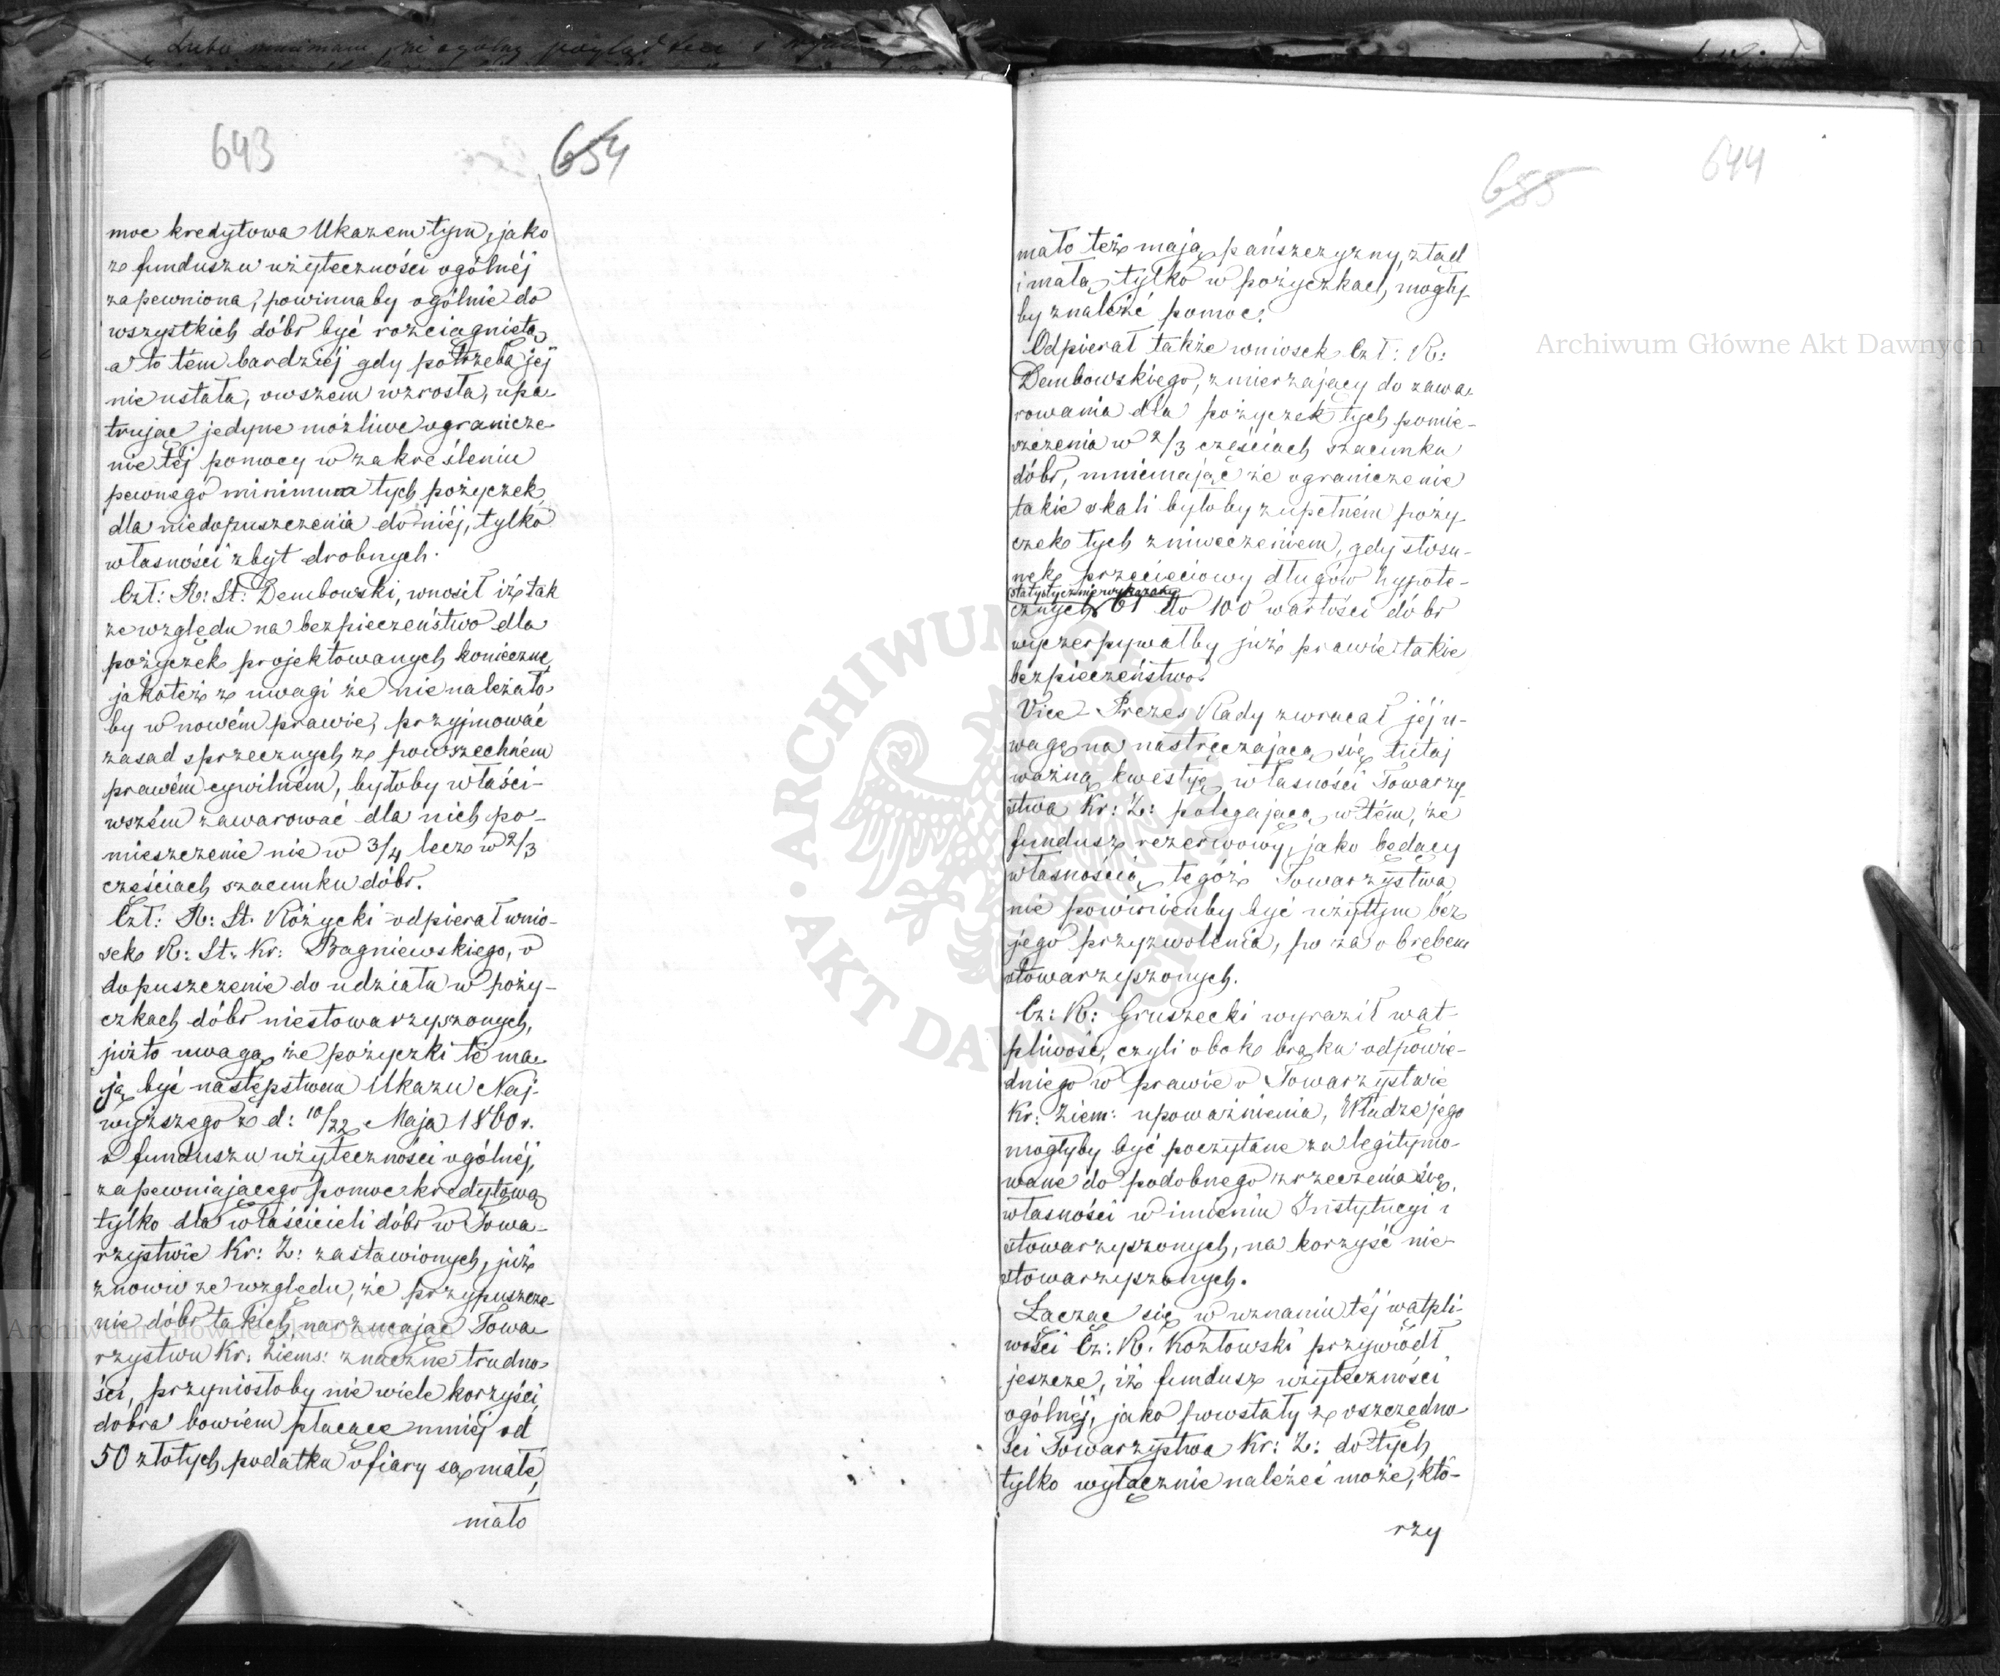 643
654
moc kredytowa Ukazem tym, jako
z funduszu użyteczności ogólnéj
zapewniona, powinnaby ogólnie do
wszystkich dóbr być rozciągnięta,
a to tem bardziéj gdy potrzeba jéj
nie ustała, owszem wzrosła, upa-
trując jedyne możliwe ogranicze-
nie téj pomocy w zakreśleniu
pewnego minimum tych pożyczek,
dla niedopuszczenia do niéj, tylko
własności zbyt drobnych.
Czł: R: St: Dembowski, wnosił iż tak
ze względu na bezpieczeństwo dla
pożyczek projektowanych konieczne,
jakoteż z uwagi że nie należało-
by w nowém prawie, przyjmować
zasad sprzecznych z powszechném
prawém cywilném, byłoby właści-
wszém zawarować dla nich po-
mieszczenie nie w 3/4 lecz w 2/3
częściach szacunku dóbr.
Czł: R: St. Różycki odpierał wnio-
sek R: St: Kr: Bagniewskiego, o
dopuszczenie do udziału w poży-
czkach dóbr niestowarzyszonych,
już to uwagą, że pożyczki te ma-
ją być następstwem Ukazu Naj-
wyższego z d: 10/22 Maja 1860 r.
o funduszu użyteczności ogólnéj,
zapewniającego pomoc kredytową
tylko dla właścicieli dóbr w Towa-
rzystwie Kr: Z: zastawionych, już
znowu ze względu, że przypuszcze-
nie dóbr takich, narzucając Towa-
rzystwu Kr: Ziems: znaczne trudno-
ści, przyniosłoby nie wiele korzyści,
dobra bowiem płacące mniéj od
50 złotych podatku ofiary są małe,
mało
655
644
mało też mają pańszczyzny, ztąd
i małą tylko w pożyczkach mogły-
by znaleźć pomoc.
Odpierał także wniosek Czł: R:
Dembowskiego, zmierzający do zawa-
rowania dla pożyczek tych pomie-
szczenia w 2/3 częściach szacunku
dóbr, mniemając że ograniczenie
takie skali byłoby zupełném poży-
czek tych zniweczeniem, gdy stosu-
nek przecięciowy długów hypote-
statystycznie wykazane
cznych 61 do 100 wartości dóbr
wyczerpywałby już prawie takie
bezpieczeństwo.
Vice-Prezes Rady zwracał jéj u-
wagę na nastręczającą się tutaj
ważną kwestyą własności Towarzy-
stwa Kr: Z: polegającą w tém, że
fundusz rezerwowy, jako będący
własnością tegóż Towarzystwa
nie powinienby być użytym bez
jego przyzwolenia, po za obrębem
stowarzyszonych.
Cz: R: Gruszecki wyraził wąt-
pliwość, czyli obok braku odpowie-
dniego w prawie o Towarzystwie
Kr: Ziem: upoważnienia, Władze jego
mogłyby być poczytane za legitymo-
wane do podobnego zrzeczenia się,
własności w imieniu Instytucyi i
stowarzyszonych, na korzyść nie-
stowarzyszonych.
Łącząc się w uznaniu téj wątpli-
wości Cz: R: Kozłowski przywiódł
jeszcze, iż fundusz użyteczności
ogólnéj, jako powstały z oszczędno-
ści Towarzystwa Kr: Z: do tych
tylko wyłącznie należeć może, któ-
rzy
Archiwum Główne Akt Dawnych
Archiwum Główne Akt Dawnych
ARCHIWUM GŁÓWNE AKT DAWNYCH